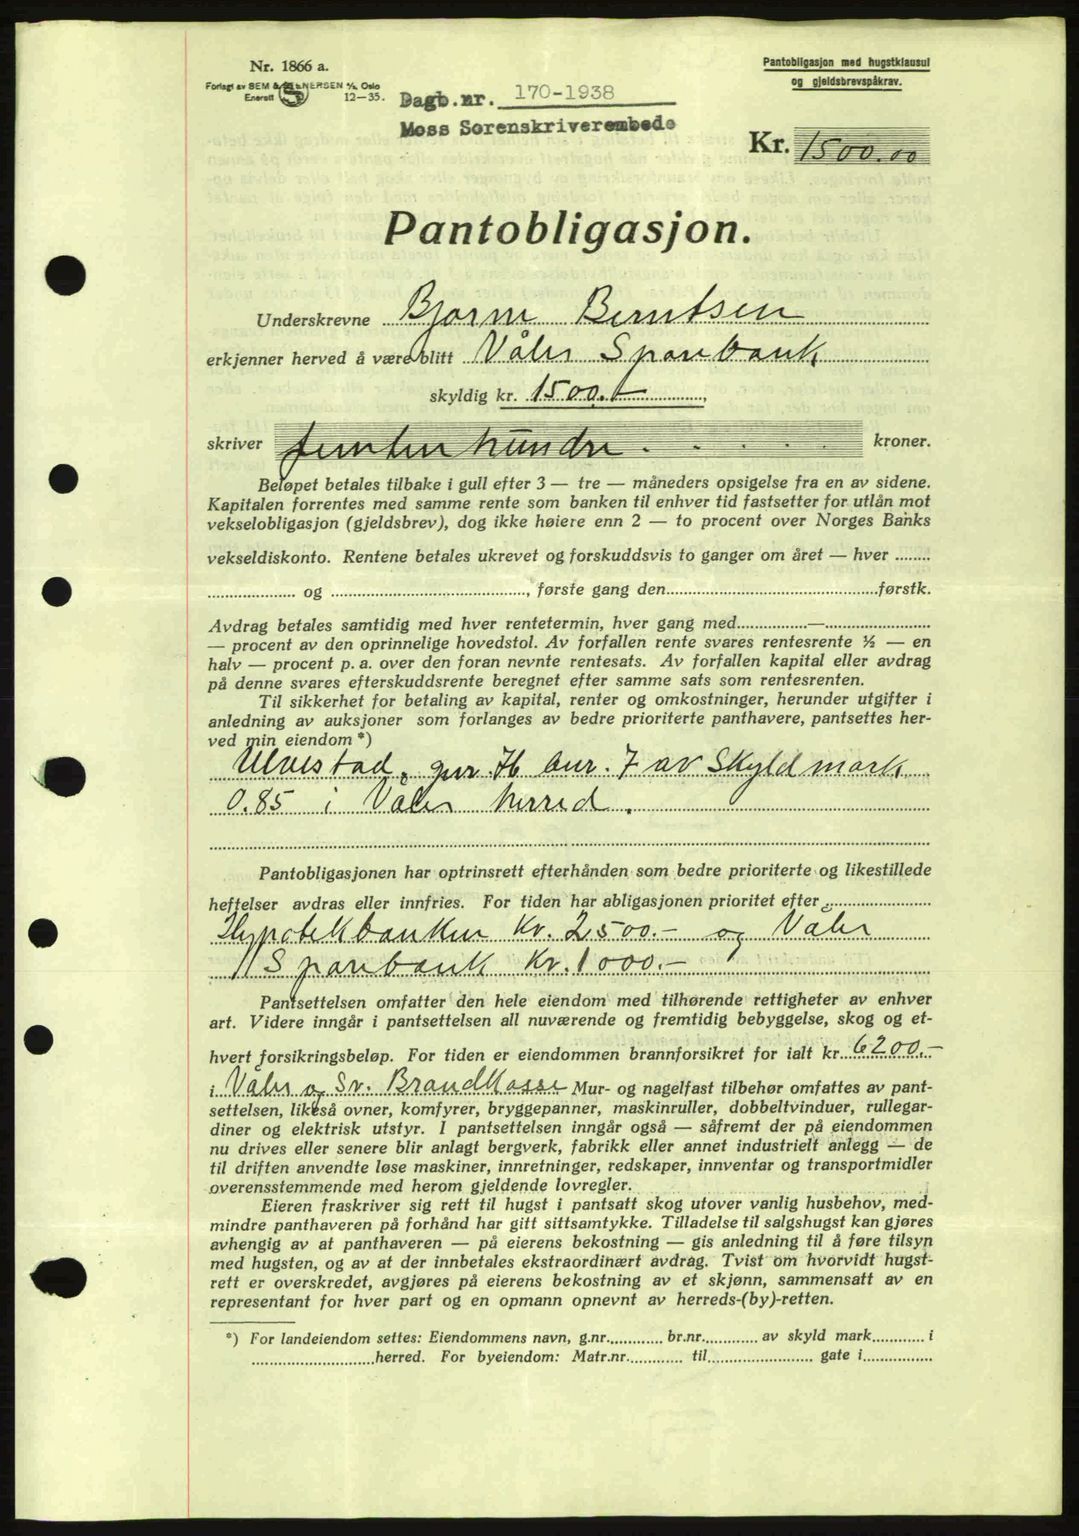 Nr. 1866 a.
Forlagt av SEM & STENERSEN A/S, Oslo
Enerett 12-35.
Dagb.nr. 170-1938
Moss Sorenskriverembede
Pantobligasjon med hugstklausul
og gjeldsbrevspåkrav.
Kr. 1500.00
Pantobligasjon.
Underskrevne Bjarne Berntsen
erkjenner herved å være blitt Våler Sparebank
skyldig kr. 1500.-
skriver femtenhundre kroner.
Beløpet betales tilbake i gull efter 3 — tre — måneders opsigelse fra en av sidene.
Kapitalen forrentes med samme rente som banken til enhver tid fastsetter for utlån mot
vekselobligasjon (gjeldsbrev), dog ikke høiere enn 2 — to procent over Norges Banks
vekseldiskonto. Rentene betales ukrevet og forskuddsvis to ganger om året — hver ........
.................... og ............................................, første gang den............................................førstk.
Avdrag betales samtidig med hver rentetermin, hver gang med...............—......................
— procent av den oprinnelige hovedstol. Av forfallen rente svares rentesrente ½ — en
halv — procent p. a. over den foran nevnte rentesats. Av forfallen kapital eller avdrag
på denne svares efterskuddsrente beregnet efter samme sats som rentesrenten.
Til sikkerhet for betaling av kapital, renter og omkostninger, herunder utgifter i
anledning av auksjoner som forlanges av bedre prioriterte panthavere, pantsettes her-
ved min eiendom *)
Ulvestad, gnr. 76 bnr. 7 av Skyldmark
0.85 i Våler herred.
Pantobligasjonen har optrinsrett efterhånden som bedre prioriterte og likestillede
heftelser avdras eller innfries. For tiden har abligasjonen prioritet efter
Hypotekbanken Kr. 2500.- og Våler
Sparebank Kr. 1000.-
Pantsettelsen omfatter den hele eiendom med tilhørende rettigheter av enhver
art. Videre inngår i pantsettelsen all nuværende og fremtidig bebyggelse, skog og et-
hvert forsikringsbeløp. For tiden er eiendommen brannforsikret for ialt kr. 6200.-
i Våler og Sv. Brandkasse Mur- og nagelfast tilbehør omfattes av pant-
settelsen, likeså ovner, komfyrer, bryggepanner, maskinruller, dobbeltvinduer, rullegar-
diner og elektrisk utstyr. I pantsettelsen inngår også — såfremt der på eiendommen
nu drives eller senere blir anlagt bergverk, fabrikk eller annet industrielt anlegg — de
til driften anvendte løse maskiner, innretninger, redskaper, innventar og transportmidler
overensstemmende med herom gjeldende lovregler.
Eieren fraskriver sig rett til hugst i pantsatt skog utover vanlig husbehov, med-
mindre panthaveren på forhånd har gitt sittsamtykke. Tilladelse til salgshugst kan gjøres
avhengig av at panthaveren — på eierens bekostning — gis anledning til å føre tilsyn
med hugsten, og av at der innbetales ekstraordinært avdrag. Tvist om hvorvidt hugst-
rett er overskredet, avgjøres på eierens bekostning av et skjønn, sammensatt av en
representant for hver part og en opmann opnevnt av herreds-(by)-retten.
*) For landeiendom settes: Eiendommens navn, g.nr............ br.nr............ av skyld mark........... i
..........................herred. For byeiendom: Matr.nr............ til...................... gate i...............